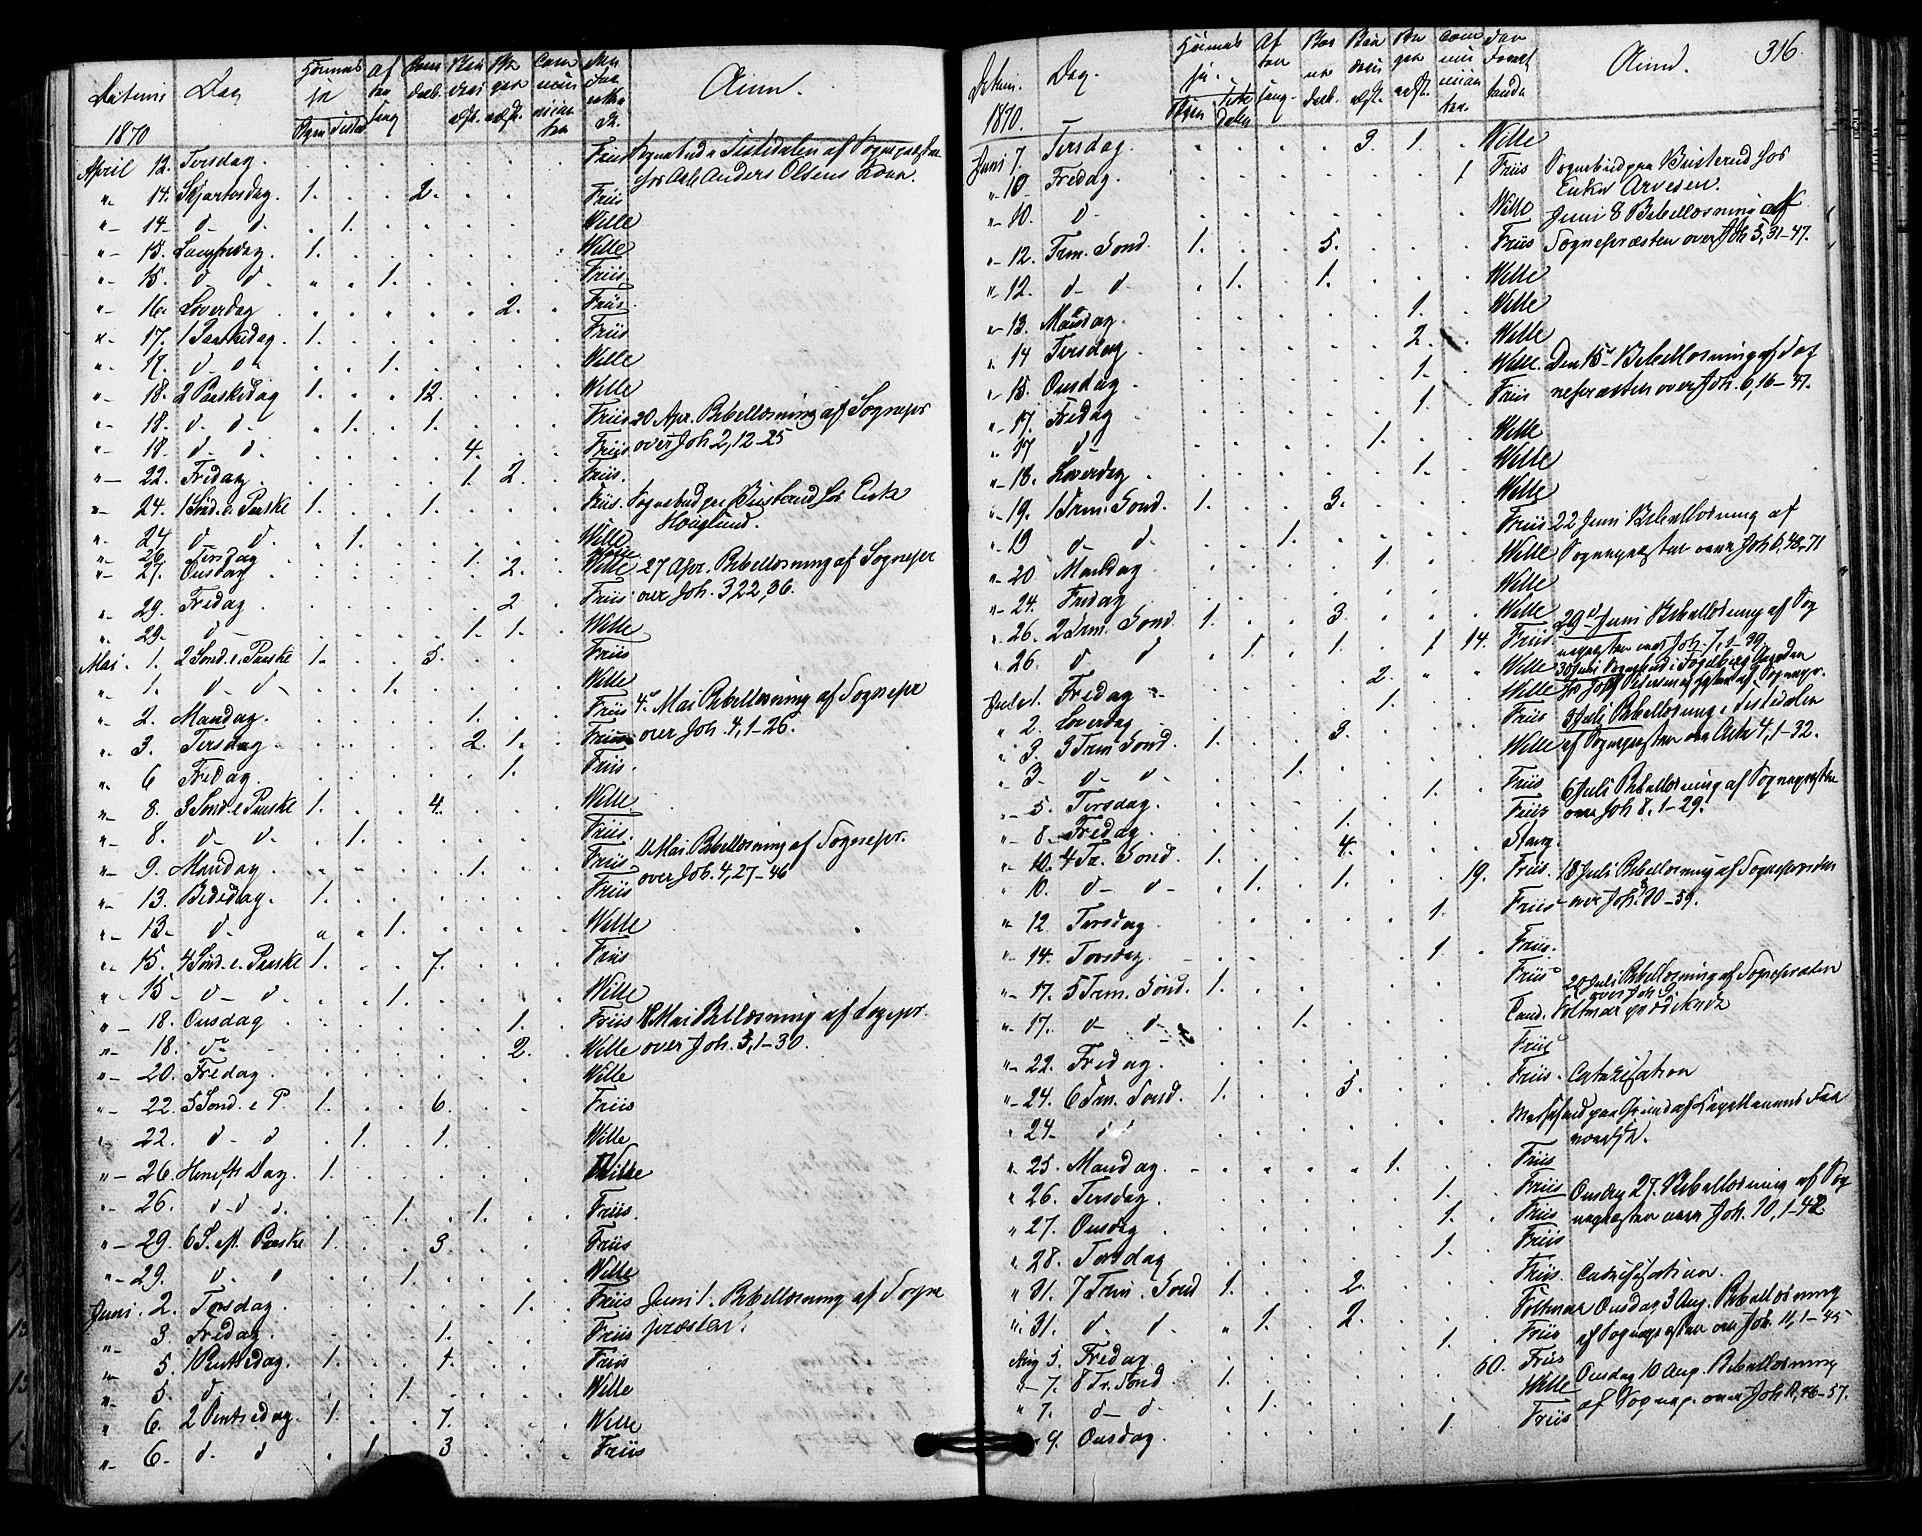 Datum Dag Anm.
1870
April 12. Tirsdag. Friis Sognebud i Tistedalen af Sognepræsten
hos Arb. Anders Olsens Kone
" 14. Skjærtorsdag. 1. 2. Friis
" 14. d. d. 1. Wille
" 15. Langfredag. 1. Wille
" 15. d. d. 1. Friis
" 16. Løverdag 2. Friis.
" 17. 1 Paaskedag. 1. Friis
" 17. d. d. 1. Wille
" 18. 2 Paaskedag 1. 12. Wille
" 18. d. d. 1. 1. Friis 20 Apr. Bibellæsning af Sognepr
" 18. d. d. 4. Friis over Joh 2, 12-25
" 22. Fredag 1. 2. Friis.
" 24. 1 Sønd. e. Paaske 1. 1. Friis. Sognebud paa Busterud hos Enke
Høiglund.
" 24 d. d. 1. Wille
" 26. Tirsdag 1.
" 27. Onsdag 2. Wille 27 Apr. Bibellæsning af Sognepr
" 29. Fredag 2. Friis over Joh. 3, 22, 36.
" 29. d 1. 1. Wille
Mai 1. 2 Sønd. e. Paaske 1. 5. Friis
" 1. d. d. 1. Wille
" 2. Mandag. 1. Friis 4. Mai Bibellæsning af Sognepr
" 3. Tirsdag 2. 1. Friis over Joh. 4, 1-26.
" 6 Fredag. 1. Friis.
" 8. 3 Sønd. e. Paaske 1. 4. Wille
" 8. d. d. 1. Friis.
" 9. Mandag 1. Friis 11 Mai Bibellæsning af Sognepr.
" 13. Bededag. 1. Friis over Joh. 4, 27-46
" 13. d. 1. Wille
" 15. 4 Sønd. e. Paaske 1. 7. Friis
" 15 d. d. 1. Wille
" 18. Onsdag 1. Friis 18 Mai Bibellæsning af Sognepr.
" 18. d. 2. Wille over Joh. 5, 1-30.
" 20. Fredag. Wille
" 22. 5 Sønd. e P. 1. 6. Friis
" 22. d. d 1. 1. Wille
" 26. Himmelf. Dag 1. Wille
" 26. d. d. 1. 1. Friis.
" 29. 6 S. eft. Paaske 1. 3. Friis
" 29. d. d 1. Wille
Juni 2. Torsdag. 1. Friis Juni 1. Bibellæsning af Sogne
" 3. Fredag. 1. Friis præsten.
" 5. 1 Pintsedag. 1. 1. Friis
" 5. d. 1. Wille
" 6. 2 Pintsedag. 1. 7. Wille
" 6. d. d 1. 3 Friis
316.
Datum. Dag. Anm.
1870.
Juni 7. Tirsdag. 3. 1. Wille
" 10 Fredag. 1 Friis Sognebud paa Busterud hos
Enken Arvesen.
" 10. d. Wille Juni 8 Bibellæsning af
" 12. Trm. Sønd. 1. 5. Friis Sognepræsten over Joh 5, 31-47.
" 12. d. d 1. 1. Wille
" 13. Mandag. 1. Wille
" 14 Tirsdag 2. Wille
" 15. Onsdag. 1. Wille. Den 15 Bibellæsning af Sog
" 17. Fredag 1. Friis nepræsten over Joh. 6, 16-47.
" 17 d. 1. Wille
" 18. Løverdag 1. Wille
" 19. 1 Trm. Sønd. 1. 3. Wille
" 19 d. d. 1. Friis 22 Juni Bibellæsning af
" 20 Mandag 1. Wille Sognepræsten over Joh 6, 48, 71
" 24. Fredag Wille
" 26. 2 Trm. Sønd. 1. 3. Wille 29 Juni Bibellæsning af Sog
" 26. d d 1. 1. 1 14. Friis nepræsten over Joh. 7, 1-39
Juli 1. Fredag 2. Wille 30 Juni Sognebud
" 2. Løverdag 1. Wille
" 3. 3 Trm Sønd. 1. 3. Friis 3 Juli Bibellæsning i Tistedalen
" 3. d. d. 1. Wille af Sognepræsten over Acta 4, 1-32.
" 5. Tirsdag. 1. Friis 6 Juli Bibellæsning af Sognepræsten
" 8. Fredag. 1. Friis over Joh 8, 1-29.
" 10. 4 Tr. Sønd. 1. 4. Stang.
" 10. d. d. 1. 1. 19. Friis. 13 Juli Bibellæsning af Sognepræsten
" 12. Tirsdag 1. Friis over Joh. 30-59.
" 14. Torsdag. 1. Friis.
" 17. 5 Trm. Sønd. 1. Friis 20 Juli Bibellæsning af Sognepræsten
over Joh. 9.
" 17. d. d. 1. Cand. Foltmar prædikede
" 22. Fredag. Friis
" 24. 6 Trm. Sønd. 1. 5. Friis. Catekisation
" 24. d. Messefald paa Grund af Capellanens Fra
værelse.
" 25. Mandag 1. Friis
" 26. Tirsdag. 1. Friis Onsdag 27. Bibellæsning af Sog
" 27. Onsdag 1. Friis nepræsten over Joh. 10, 1-42.
" 28. Torsdag 1. Friis
" 31. 7 Trm. Sønd 1. 2. Friis. Catekisation.
" 31. d. d. 1. 2. Foltmar Onsdag 3 Aug. Bibellæsning
Aug 5. Fredag 1. Friis af Sognepræsten over Joh. 11, 1-45
" 7. 8 Tr. Sønd 1. 60. Friis Onsdag 10 Aug. Bibellæsning
" 7. d. d. 1. Wille af Sognepr. over Joh 11, 46-57.
" 9. Onsdag. 1. Friis